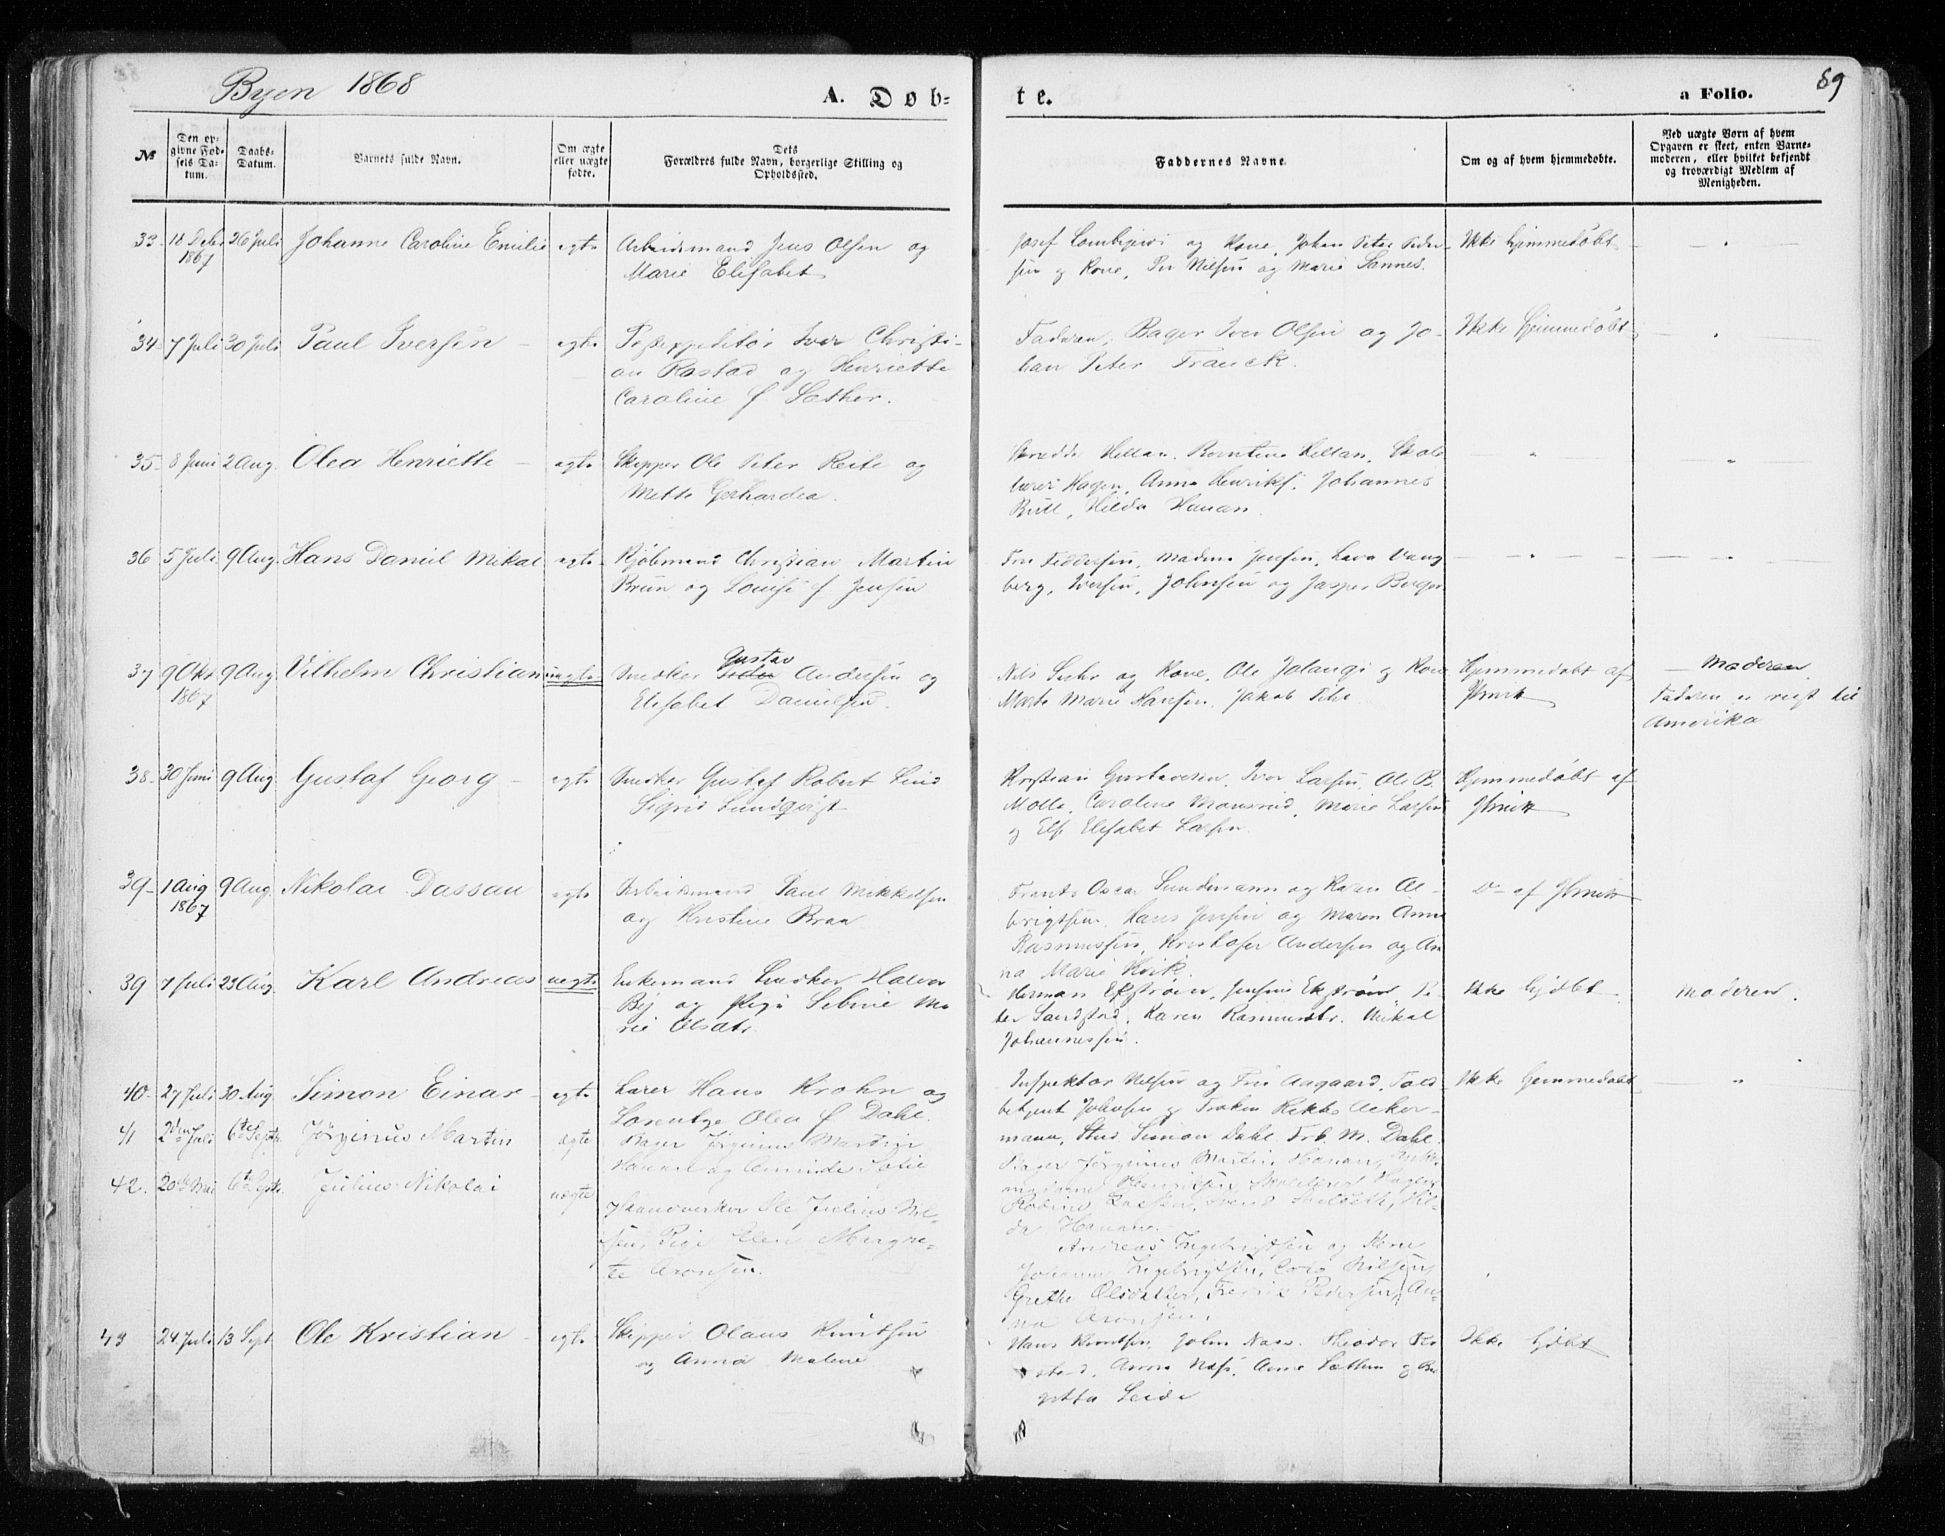 Byen 1868
A. Døb-
te.
a Folio.
89
No
Den op-
givne Fød-
sels Da-
tum.
Daabs-
Datum.
Barnets fulde Navn.
Om ægte
eller uægte
fødte.
Dets
Forældres fulde Navn, borgerlige Stilling og
Opholdssted.
Faddernes Navne.
Om og af hvem hjemmedøbte.
Ved uægte Børn af hvem
Opgaven er skeet, enten Barne-
moderen, eller hvilket bekjendt
og troværdigt Medlem af
Menigheden.
33 18 Decbr 1867 26 Juli Johanne Caroline Emilie egte Arbeidsmand Jens Olsen og
Marie Elisabet
og Kone, Johan Peter Peder-
sen og Kone, Per Nilsen og Marie Sannes.
Ikke hjemmedøbt
34 7 Juli 30 Juli Paul Iversen egte Postexpeditør Iver Christi-
an Rostad og Henriette
Caroline f Sæther.
Faderen, Bager Iver Olsen og Jo-
han Peter Franck.
Ikke hjemmedøbt
35 8 Juni 2 Aug. Olea Henriette egte Skipper Ole Peter Reite og
Mette Gerhardea.
Hellan, Berntine Hellan, Skole
lærer Hagen, Anna Henriks, Johannes
Hilda Hanan.
36 5 Juli 9 Aug. Hans Daniel Mikal egte Kjøbmand Christian Martin
Brun og Louise f Jensen
Fru Feddersen, Madame Jensen, Lava Vang
berg, Iversen, Johnsen og Jasper Berger
37 9 Okt 1867 9 Aug Vilhelm Christian uegte Snedker Gustav Andersen og
Elisabet Danielsen.
Nils og Kone, Ole og Kone
Marte Marie Hansen, Jakob
Hjemmedøbt af
Moderen
Faderen er reist til
Amerika
38 30 Juni 9 Aug. Gustaf Georg egte Snedker Gustaf Robert Lind
Sigrid Lundqvist
Kristian Gustavesen, Iver Larsen, Ole B.
Molla, Caroline Monsrud, Marie Larsen
og Else Elisabet Larsen.
Hjemmedøbt af
39 1 Aug 1867 9 Aug. Nikolai Dassau egte Arbeidsmand Paul Mikkelsen
og Kristine Braa
Frants Oscar Sundmann og Karen Al-
brigtsen, Hans Jensen og Maren Anna
Rasmussen, Kristofer Andersen og An
na Marie Kvik.
Do af
39 7 Juli 23 Aug. Karl Andreas uegte Enkemand Snedker Halvor
By og Pige Sebine Ma
rie Olsdtr.
Herman Ekstrøm, Jensine Ekstrøm, Pe-
ter Sandstad, Karen Rasmusdtr. Mikal
Johannessen.
Ikke hjdbt
Moderen.
40 27 Juli 30 Aug. Simon Einar egte Lærer Hans Krohn og
Lorentze Olea f Dahl
Inspektør Nilsen og Fru Aagaard, Told
betjent Johnsen og Frøken Rikke Acker-
mann, Stud. Simon Dahl. Frk. M. Dahl.
Ikke hjemmedøbt
41 2den Juli 6te Septr. Jörginus Martin ægte Bager Jörginus Martin
Hanan og Sofie
Bager Jörginus Martin Hanan,
Skolelærer Hagen,
Hil-
da Hanan.
42. 20de Mai 6te Septr. Julius Nikolai uægte Haandverker Ole Julius Nil-
sen, Pige Elen Margre-
te Aronsen.
Andreas Ingebrigtsen og Kone
Johanna Ingebrigtsen, Nilsen,
Grethe Olsdatter, Fredrik Pedersen, An-
na Aronsen.
43 24 Juli 13 Sept. Ole Kristian egte Skipper Olaus Knutsen
og Anna Malene
Hans Knutsen, John Næss. Theodor Ro
stad, Anna Næss, Anne Sæthern og Be
Leide
Ikke hjdbt